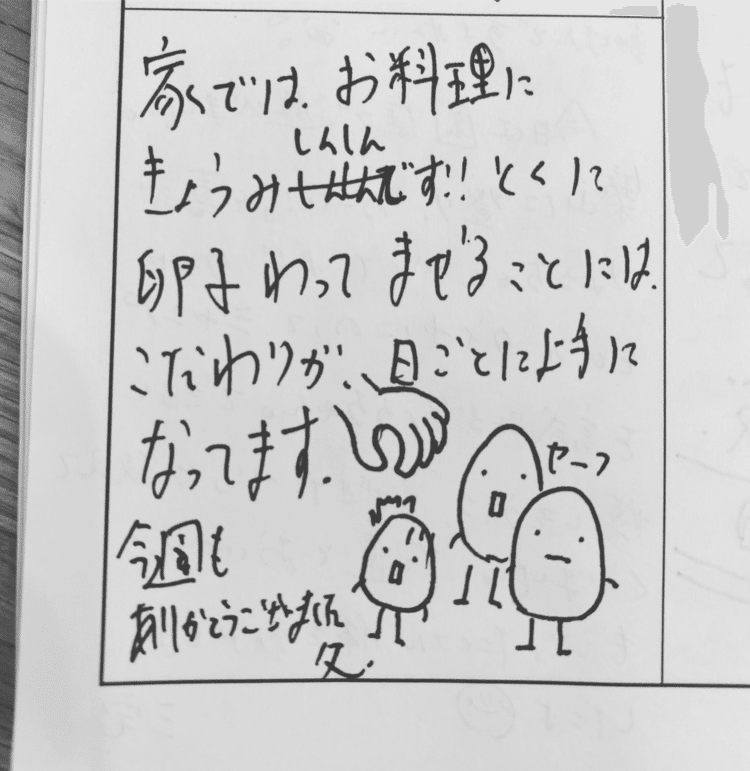 家では、お料理に
しんしん
きょうみせんせんです!! とくに
卵子わって まぜることには、
こだわりが、日ごとに上手に
なってます。
やーっ
今週も
ありがとうございました
父.